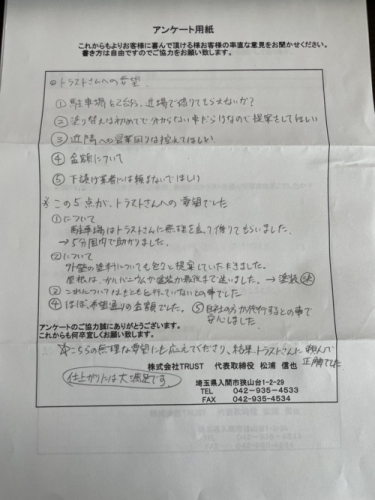 アンケート用紙
これからもよりお客様に喜んで頂ける様お客様の率直な意見をお聞かせください。
書き方は自由ですのでご協力をお願い致します。
◎トラストさんへの要望
① 駐車場を2台分、近場で借りてもらえないか?
② 塗り替えは初めてで分からない事だらけなので提案をしてほしい
③ 近隣への営業回りは控えてほしい
④ 金額について
⑤ 下請け業者には頼まないでほしい
※この5点が、トラストさんへの要望でした
①について
駐車場はトラストさんに無理を言って借りてもらいました。
→5分圏内で助かりました。
②について
外壁の塗料についても色々と提案していただきました。
屋根は、ガルバニウムか塗装か最後まで迷いました。→塗装
③これについてはもともと行っていないとの事でした
④ほぼ希望通りの金額でした。 ⑤自社の方が代行するとの事で
安心しました。
アンケートのご協力誠にありがとうございます。
これからも何卒宜しくお願い致します。
※こちらの無理な要望にも応えてくださり、結果トラストさんに頼んで
正解でした
株式会社TRUST 代表取締役 松浦 信也
仕上がりは大満足です
埼玉県入間市狭山台1-2-29
TEL 042-935-4533
FAX 042-935-4534